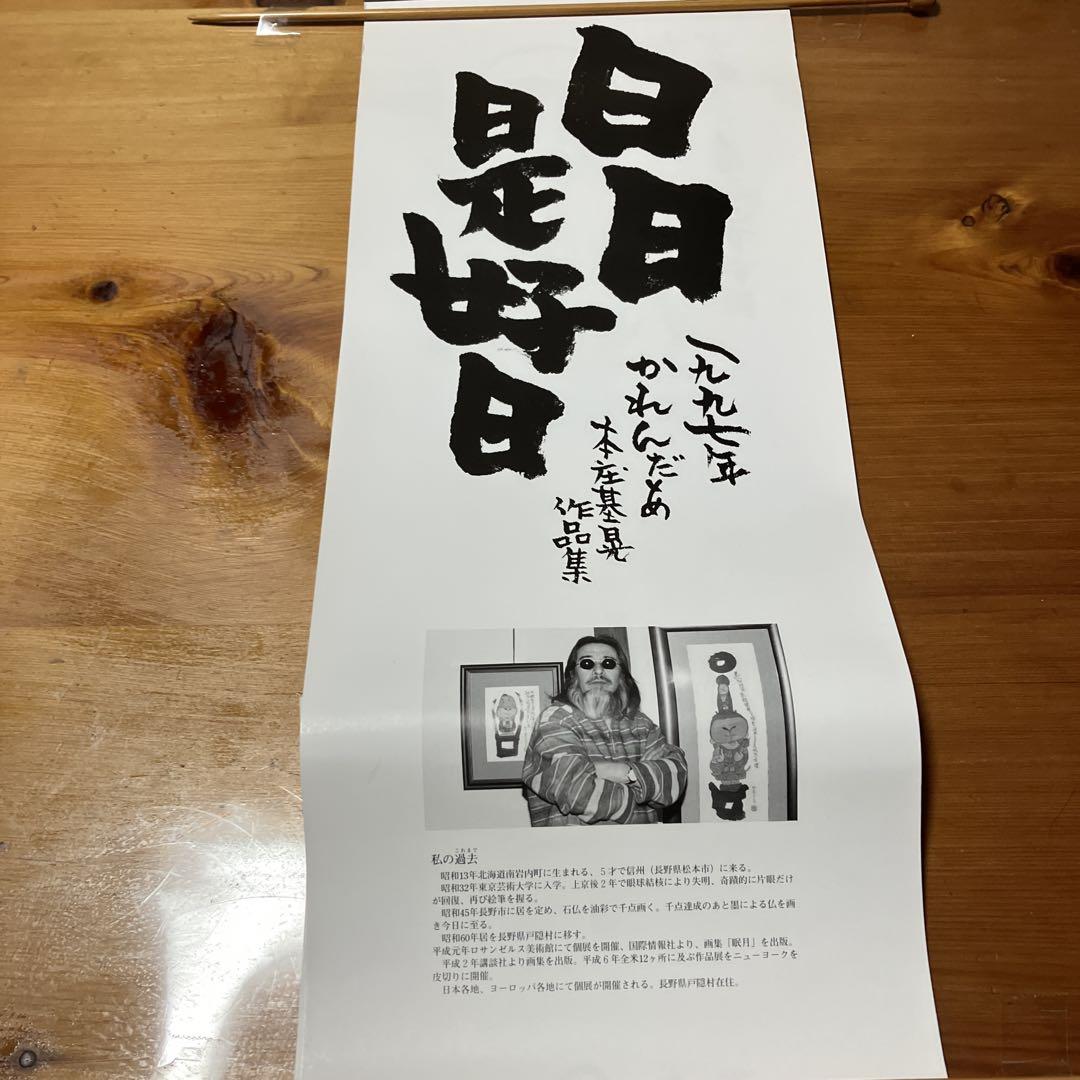 日日
是好日
一九九七年
かれんだあ
本庄基晃
作品集
私の過去
これまで
昭和13年北海道南岩内町に生まれる、5才で信州(長野県松本市)に来る。
昭和32年東京芸術大学に入学。上京後2年で眼球結核により失明、奇蹟的に片眼だけ
が回復、再び絵筆を握る。
昭和45年長野市に居を定め、石仏を油彩で千点画く。千点達成のあと墨による仏を画
き今日に至る。
昭和60年居を長野県戸隠村に移す。
平成元年ロサンゼルス美術館にて個展を開催、国際情報社より、画集「眠月」を出版。
平成2年講談社より画集を出版。平成6年全米12ヶ所に及ぶ作品展をニューヨークを
皮切りに開催。
日本各地、ヨーロッパ各地にて個展が開催される。長野県戸隠村在住。